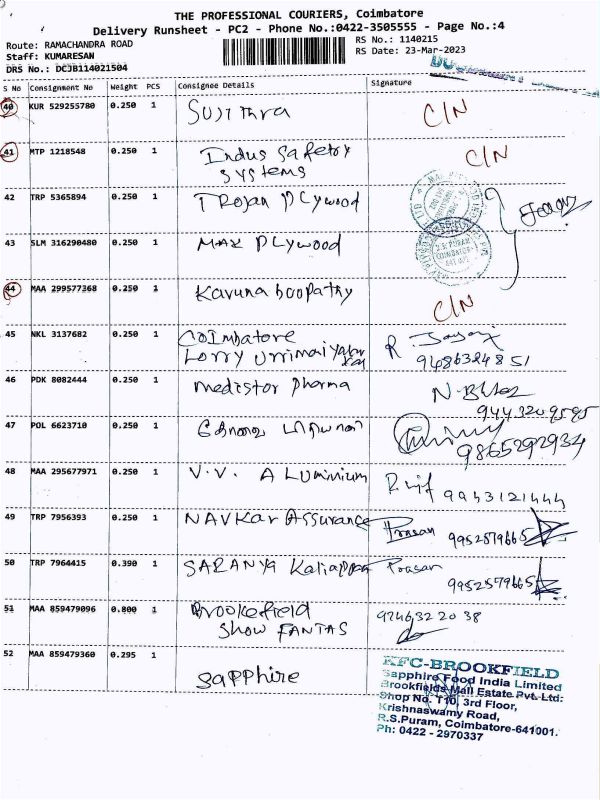 THE PROFESSIONAL COURIERS, Coimbatore
Delivery Runsheet - PC2 - Phone No.:0422-3505555 - Page No.:4
Route: RAMACHANDRA ROAD
Staff: KUMARESAN
DRS No.: DCJB114021504
RS No.: 1140215
RS Date: 23-Mar-2023
S No Consignment No Weight PCS Consignee Details Signature
40 KUR 529255780 0.250 1 Sujithra C/N
41 MTP 1218548 0.250 1 Indus Safety C/N
Systems
42 TRP 5365894 0.250 1 Trojan Plywood
43 SLM 316290480 0.250 1 Max Plywood
44 MAA 299577368 0.250 1 Karunaboopathy C/N
45 NKL 3137682 0.250 1 Coimbatore R.
Lorry Urrimaiyalar 9486324851
46 PDK 8082444 0.250 1 Medistor Pharma
9443209595
47 POL 6623710 0.250 1
9865292934
48 MAA 295677971 0.250 1 V.V. Aluminium 9943121444
49 TRP 7956393 0.250 1 NAVKar Assurance Prasan 9952579665
50 TRP 7964415 0.390 1 SARANYA Kaliappan Prasan
9952579665
51 MAA 859479096 0.800 1 Brookefield 9746322038
Show FANTAS
52 MAA 859479360 0.295 1 Sapphire
KFC-BROOKFIELD
Sapphire Food India Limited
Brookfields Mall Estate Pvt. Ltd:
Shop No. T10, 3rd Floor,
Krishnaswamy Road,
R.S.Puram, Coimbatore-641001.
Ph: 0422 - 2970337